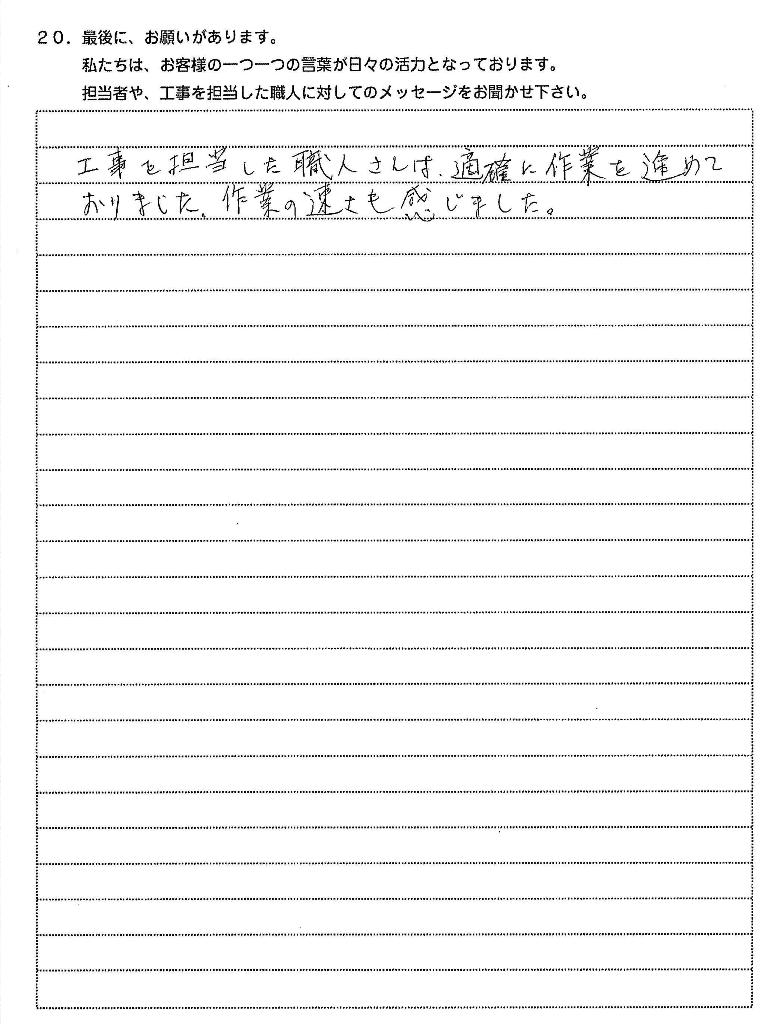 20. 最後に、お願いがあります。
私たちは、お客様の一つ一つの言葉が日々の活力となっております。
担当者や、工事を担当した職人に対してのメッセージをお聞かせ下さい。
工事を担当した職人さんは、適確に作業を進めて
おりました。作業の速さも感じました。